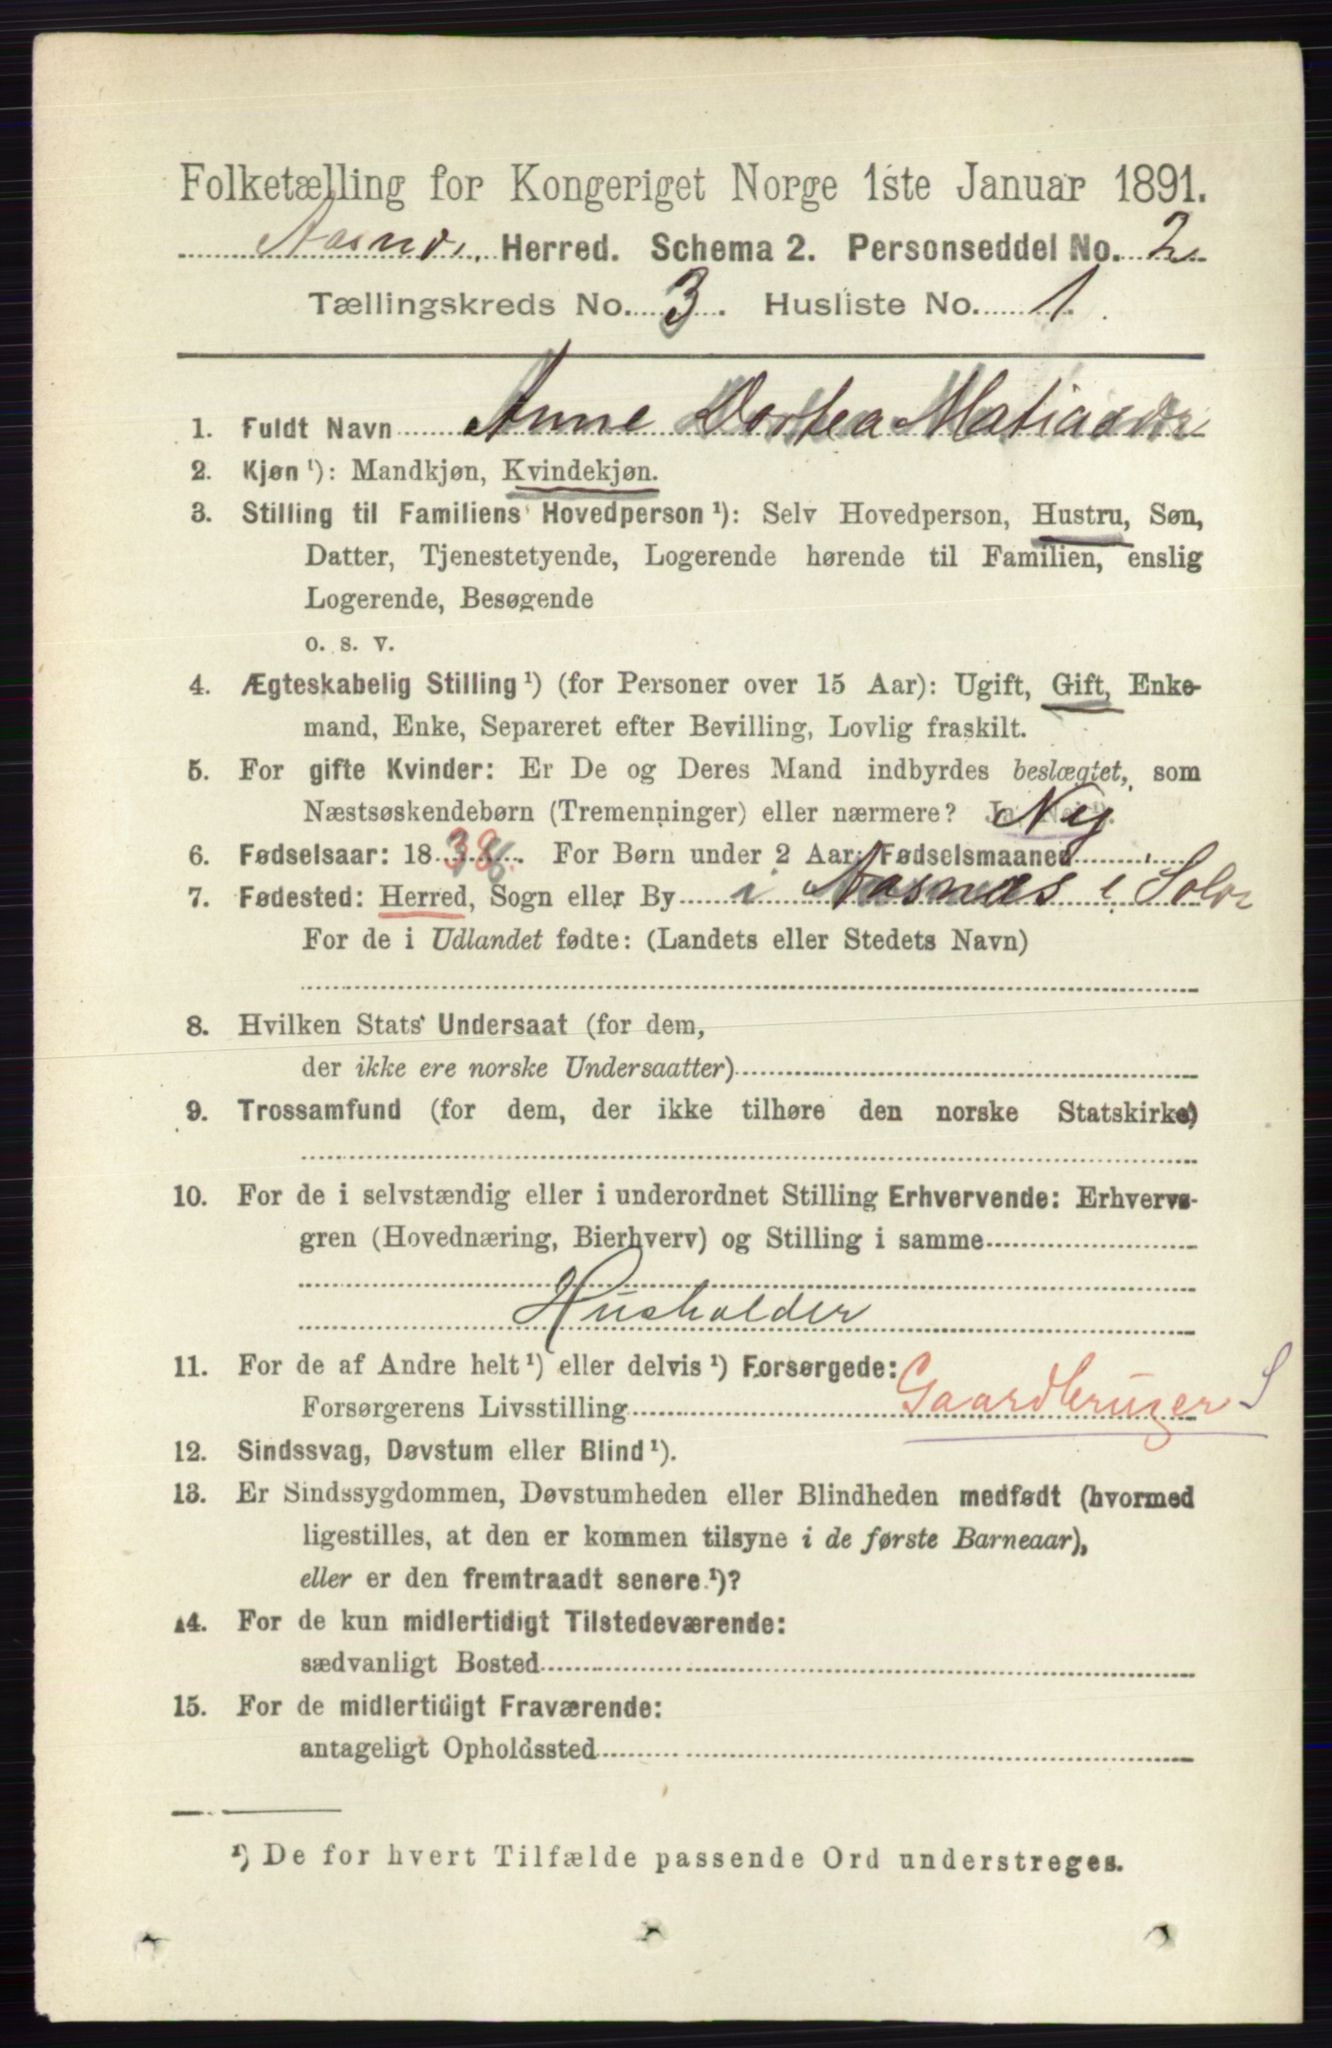 Folketælling for Kongeriget Norge 1ste Januar 1891.
Aasnæs Herred. Schema 2. Personseddel No. 2
Tællingskreds No. 3. Husliste No. 1.
1. Fuldt Navn Anne Dorthea Matiasdr
2. Kjøn ¹): Mandkjøn, Kvindekjøn.
3. Stilling til Familiens Hovedperson ¹): Selv Hovedperson, Hustru, Søn,
Datter, Tjenestetyende, Logerende hørende til Familien, enslig
Logerende, Besøgende
o. s. v.
4. Ægteskabelig Stilling ¹) (for Personer over 15 Aar): Ugift, Gift, Enke-
mand, Enke, Separeret efter Bevilling, Lovlig fraskilt.
5. For gifte Kvinder: Er De og Deres Mand indbyrdes beslægtet, som
Næstsøskendebørn (Tremenninger) eller nærmere? Ja Nej
6. Fødselsaar: 1838. For Børn under 2 Aar: Fødselsmaaned
7. Fødested: Herred, Sogn eller By i Aasnæs i Solør
For de i Udlandet fødte: (Landets eller Stedets Navn)
8. Hvilken Stats Undersaat (for dem,
der ikke ere norske Undersaatter)
9. Trossamfund (for dem, der ikke tilhøre den norske Statskirke)
10. For de i selvstændig eller i underordnet Stilling Erhvervende: Erhvervs-
gren (Hovednæring, Bierhverv) og Stilling i samme
Husholder
11. For de af Andre helt ¹) eller delvis ¹) Forsørgede:
Forsørgerens Livsstilling Gaardbruger S
12. Sindssvag, Døvstum eller Blind ¹).
13. Er Sindssygdommen, Døvstumheden eller Blindheden medfødt (hvormed
ligestilles, at den er kommen tilsyne i de første Barneaar),
eller er den fremtraadt senere ¹)?
14. For de kun midlertidigt Tilstedeværende:
sædvanligt Bosted
15. For de midlertidigt Fraværende:
antageligt Opholdssted
¹) De for hvert Tilfælde passende Ord understreges.